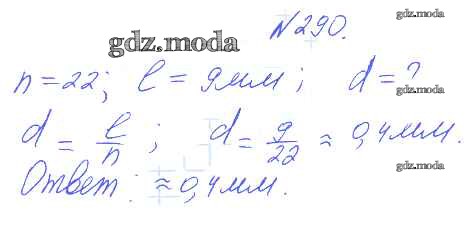 gdz.moda
№290.
gdz.moda
n=22; l=9мм; d=?
gdz.moda
d = l/n; d = 9/22 ≈ 0,4мм.
gdz.moda
Ответ: ≈0,4мм.